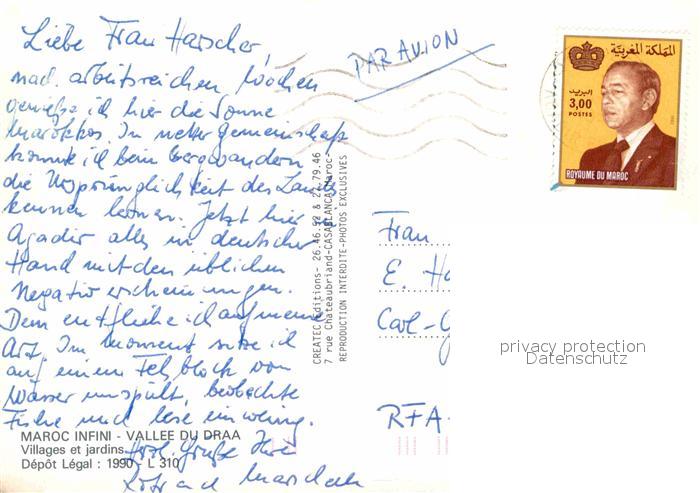 Liebe Frau Harscher,
nach arbeitsreichen Wochen
genieße ich hier die Sonne
Marokkos. In netter Gemeinschaft
konnte ich beim Bergwandern
die Ursprünglichkeit des Landes
kennen lernen. Jetzt hier
Agadir alles in deutscher
Hand mit den üblichen
Negativerscheinungen.
Dem entfliehe ich auf meine
Art. Im Moment sitze ich
auf einem Felsblock von
Wasser umspült, beobachte
Fische und lese ein wenig.
Herzl. Grüße Ihre
MAROC INFINI - VALLEE DU DRAA
Villages et jardins
Dépôt Légal : 1990 - L 310
CREATEC Editions- 26.46.52 & 27.79.46
7 rue Chateaubriand-CASABLANCA-Maroc-
REPRODUCTION INTERDITE-PHOTOS EXCLUSIVES
PAR AVION
المملكة المغربية
البريد
3,00
POSTES
ROYAUME DU MAROC
Frau
E. Ha
Carl-G
RFA.
privacy protection
Datenschutz